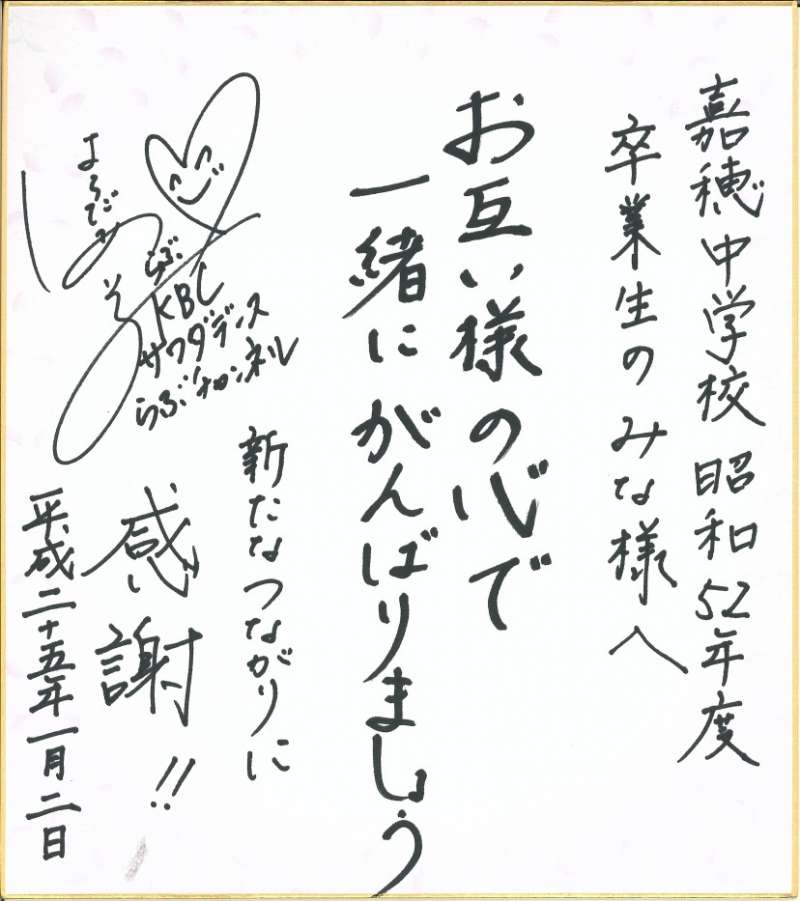 嘉穂中学校 昭和52年度
卒業生のみな様へ
お互い様の心で
一緒にがんばりましょう
新たなつながりに
感謝!!
KBC
サワダデンス
らぶチャンネル
平成二十五年一月二日